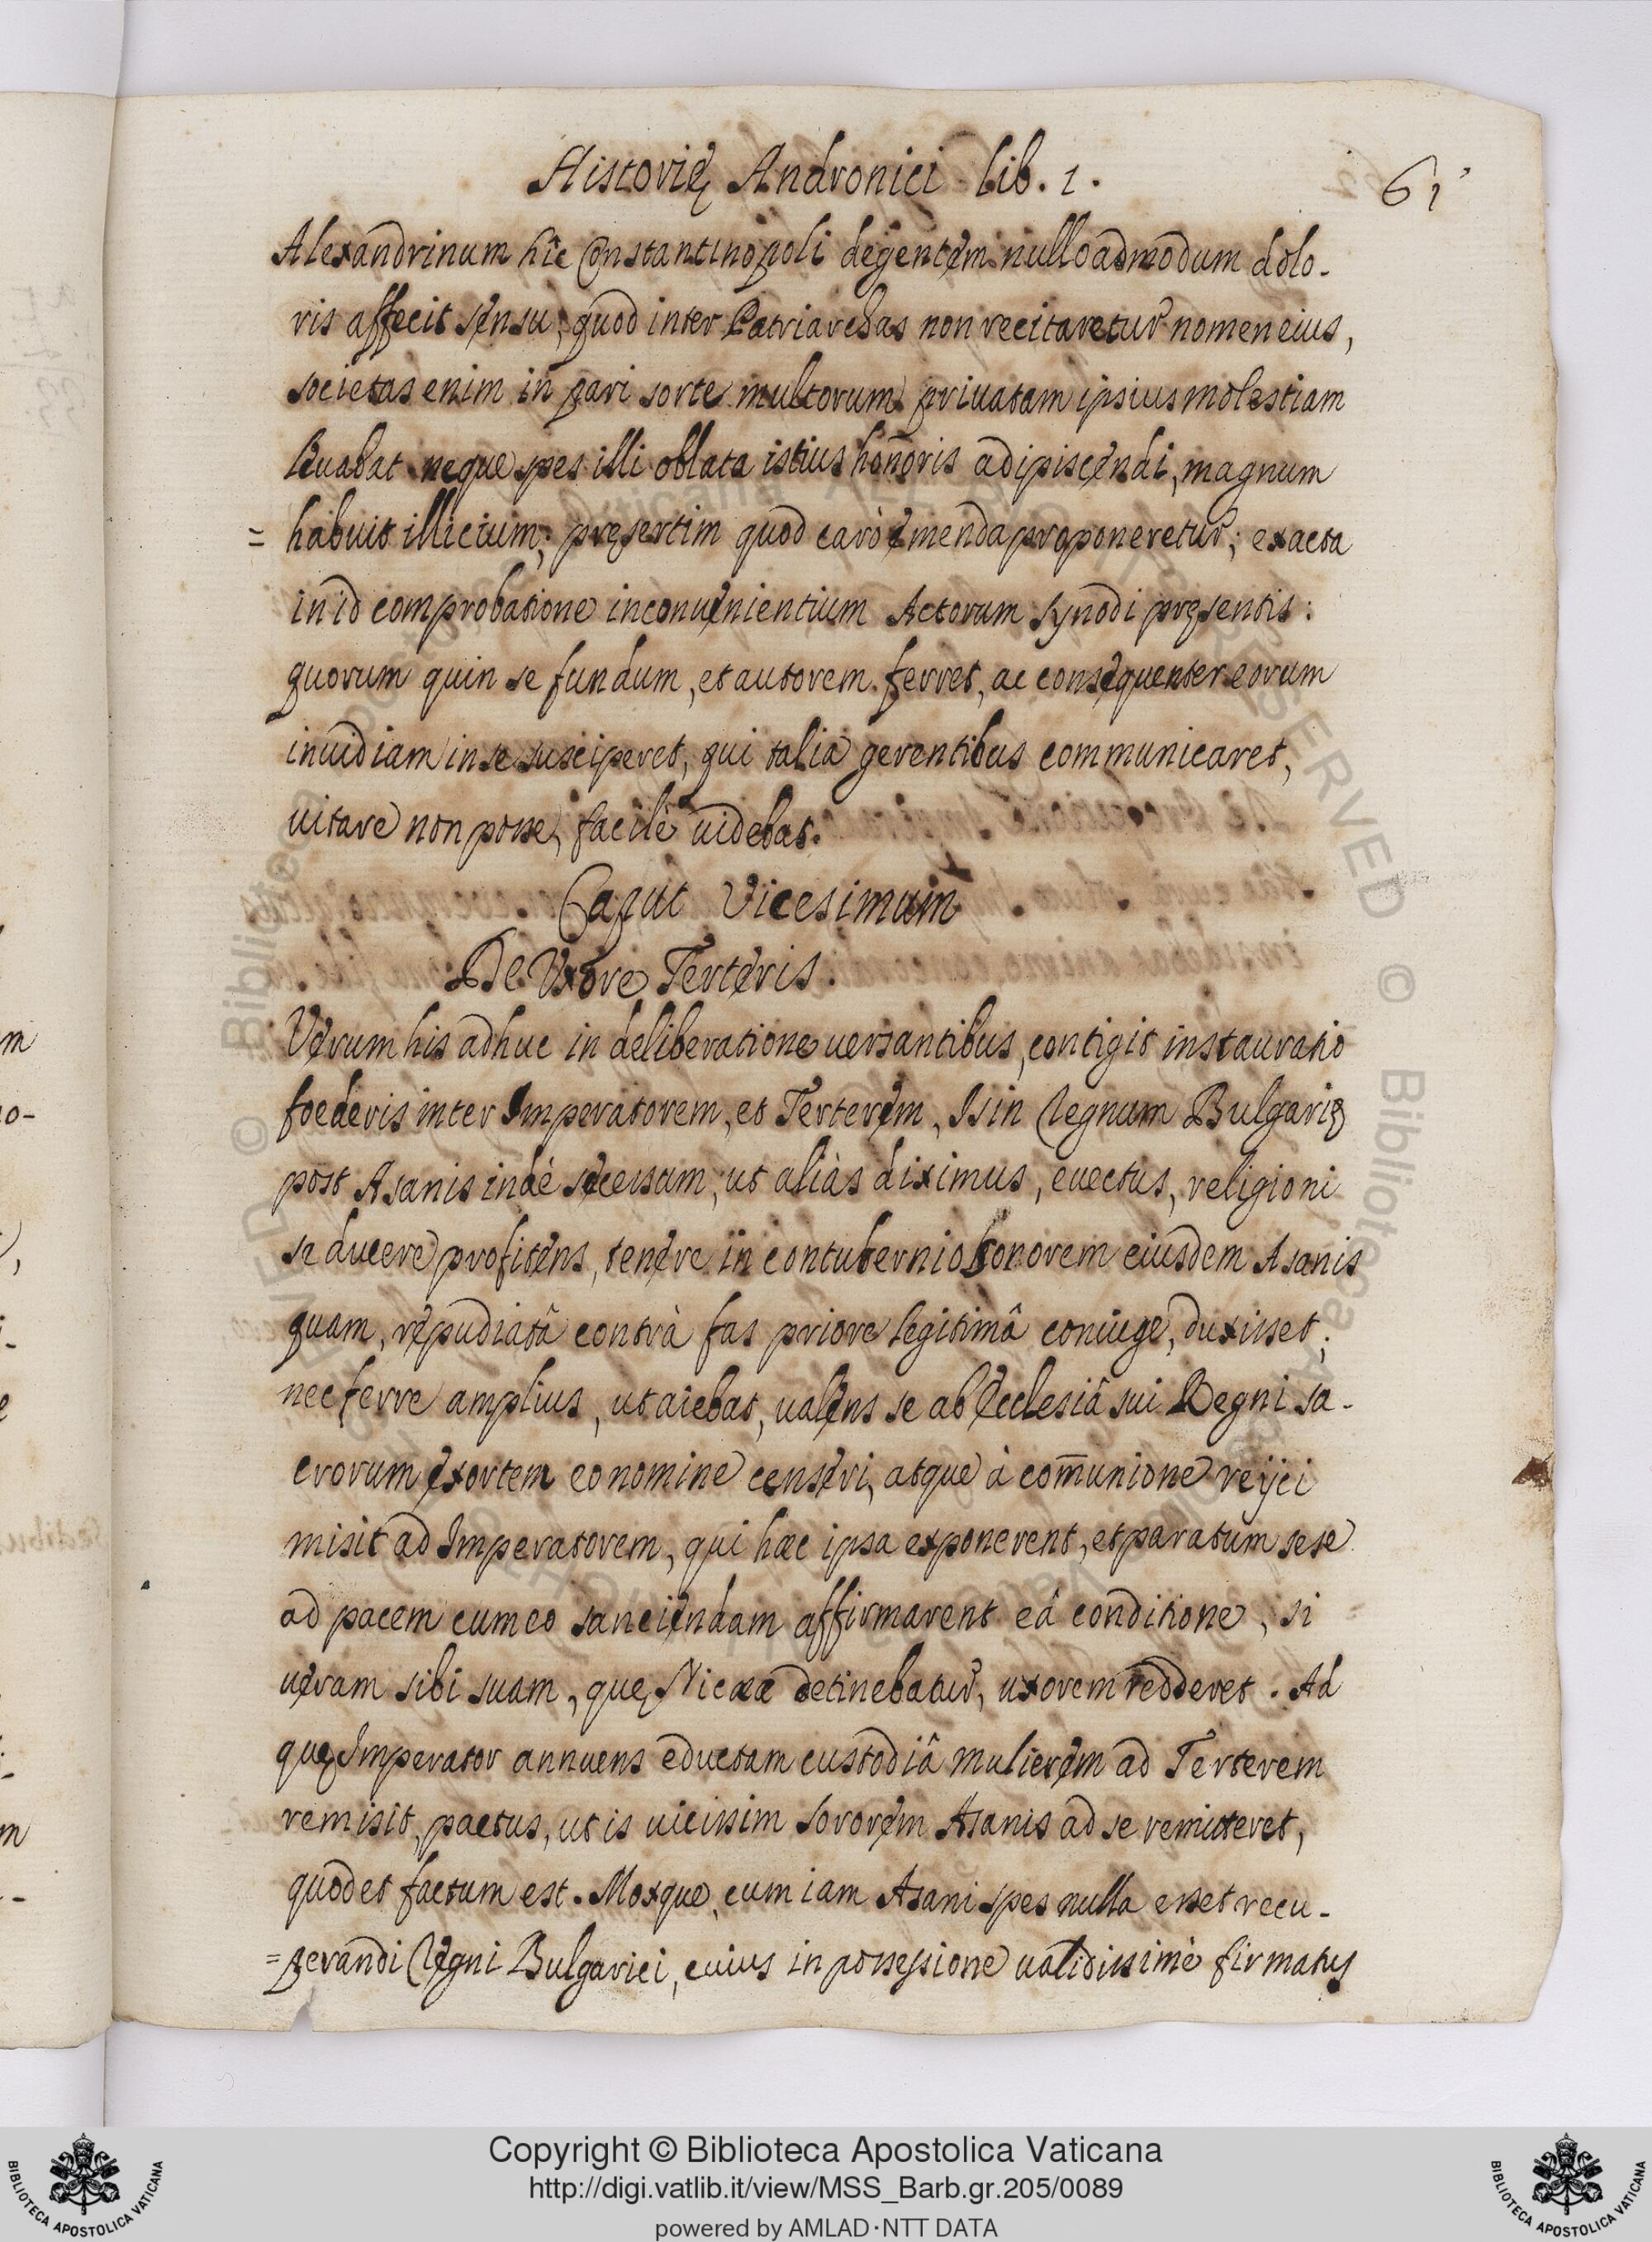 Historię Andronici lib. 1.
61
Alexandrinum hîc Constantinopoli degentem nullo admodum dolo-
ris affecit sensu, quod inter Patriarchas non recitaretur nomen eius,
societas enim in pari sorte multorum priuatam ipsius molestiam
leuabat neque spes illi oblata istius honoris adipiscendi, magnum
= habuit illicium; pręsertim quod carò emenda proponeretur; exacta
in id comprobatione inconuenientium Actorum synodi pręsentis:
quorum quin se fundum, et autorem ferret, ac consequenter eorum
inuidiam in se susciperet, qui talia gerentibus communicaret,
uitare non posse, facilè uidebat.
Caput Vicesimum
De Vxore Terteris.
Verum his adhuc in deliberatione uersantibus, contigit instauratio
foederis inter Imperatorem, et Terterem, Is in Regnum Bulgarię
post Asanis indè secessum, ut aliàs diximus, euectus, religioni
se ducere profitens, tenere in contubernio sororem eiusdem Asanis
quam, repudiatâ contrà fas priore legitimâ coniuge, duxisset;
nec ferre amplius, ut aiebat, ualens se ab Ecclesiâ sui Regni sa-
crorum exortem eo nomine censeri, atque à com̄unione reijci
misit ad Imperatorem, qui hæc ipsa exponerent, et paratum sese
ad pacem cum eo sanciendam affirmarent eâ conditione, si
ueram sibi suam, quę Nicææ detinebatur, uxorem redderet. Ad
quę Imperator annuens eductam custodiâ mulierem ad Terterem
remisit, pactus, ut is uicissim sororem Asanis ad se remitteret,
quod et factum est. Moxque, cum iam Asani spes nulla esset recu-
=perandi Regni Bulgarici, cuius in possessione ualidissimè firmatus
Copyright © Biblioteca Apostolica Vaticana
http://digi.vatlib.it/view/MSS_Barb.gr.205/0089
powered by AMLAD·NTT DATA
BIBLIOTECA APOSTOLICA VATICANA
BIBLIOTECA APOSTOLICA VATICANA